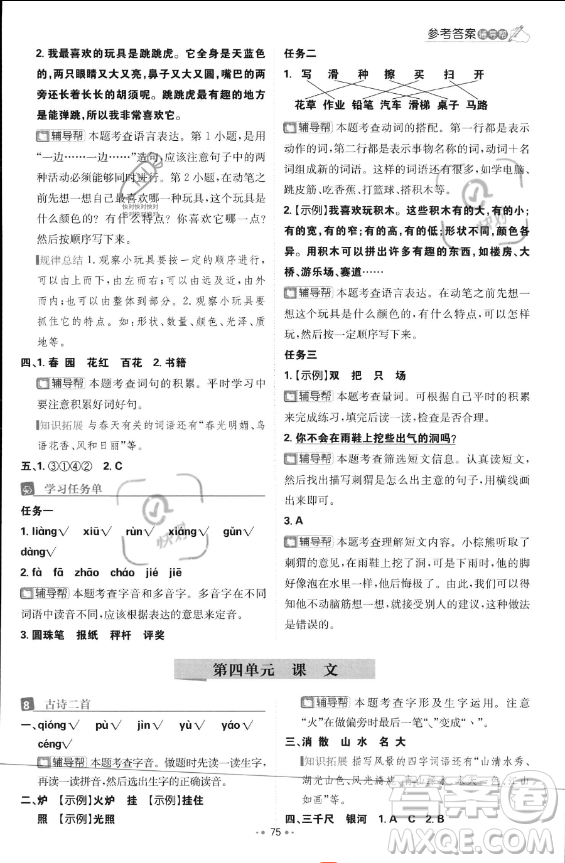 参考答案 辅导帮
2. 我最喜欢的玩具是跳跳虎。它的身体是天蓝色
的,两只眼睛又大又亮,鼻子又大又红,嘴巴的两
旁还长着长长的胡须呢。跳跳虎最有趣的地方
是能弹跳,所以我非常喜欢它。
辅导帮 本题考查语言表达。第1小题,是用
“一边……一边……”造句,应该注意句子中的两
种活动必须能够同时进行。第2小题,在动笔之
前先想一想自己最喜欢哪一种玩具,这种玩具是
什么颜色的?有什么特点?你喜欢它哪一方面?
然后按一定的顺序写下来。
规律总结 1.观察小玩具要按一定的顺序进行,
或由上而下,或由左而右,或由头到尾,或由整体
到部分,或由外而内……2.观察小玩具要
抓住它的特点。如:形状、数量、颜色、光泽、质
地等。
四、1. 春 园 花红 百花 2. 书籍
辅导帮 本题考查词句的积累。平时学习时,
要注意积累好词好句。
知识拓展 与春天有关的词语还有“春光明媚、鸟
语花香、风和日丽”等。
五、1. ③①④② 2. C
学习任务单
任务一
1. liàng√ xiū√ rùn√ xiáng√ gǔn√
dàng√
2. fà fā zhāo cháo jié jiē
辅导帮 本题考查字音和多音字。多音字在不同
词语中读音不同,应根据表达的意思来定音。
3. 圆珠笔 报纸 秤杆 评奖
任务二
1. 写 滑 种 擦 买 扫 开
花草 作业 铅笔 汽车 滑梯 桌子 马路
辅导帮 本题考查动词的搭配。第一行都是表示
动作的词,第二行都是表示事物名称的词,动词+名
词组成新的词语。这样的词语还有很多,如学电脑、
跳皮筋、吃香蕉、打篮球、搭积木等。
2. 【示例】我喜欢玩积木。这些积木有的大,有的小,
有的宽,有的窄,有的高,有的低;形状不同,颜色各
异。用积木可以拼出许多有趣的东西,如楼房、大
桥、游乐场、赛道……
辅导帮 本题考查语言表达。在动笔之前先想一
想这个玩具是什么样的,是什么颜色的,怎么
玩,然后按一定顺序写下来。
任务三
1. 【示例】双 把 只 场
辅导帮 本题考查量词。可以根据自己平时的积累
来完成练习,填完后,检查是否合理。
2. 你不会在雨鞋上挖些出气的洞吗?
辅导帮 本题考查筛选短文信息。认真读短文,
然后找出描写刺猬出主意的句子,用横线画出
来。
3. A
辅导帮 本题考查理解短文内容。小棕熊听了刺
猬的意见,在雨鞋上挖了洞,再下雨时雨水灌进了
他的雨鞋里,他后悔极了。由此可知,小棕熊遇事
不动脑筋想一想,就听别人的建议,这种做法
是错误的。
第四单元 课 文
8 古诗二首
一、qióng√ pù√ jìn√ yù√ yáo√
céng√
辅导帮 本题考查字音。做题时先读一读生字,
再读一读拼音,然后选出生字的正确读音。
二、炉 【示例】火炉 挂 【示例】挂住
照 【示例】光照
辅导帮 本题考查字形及生字运用。注意
“火”在做偏旁时,一般“乀”变成“丶”。
三、消 散 山 水 名 大
知识拓展 描写风景的四字词语还有“山清水秀、
四、三千尺 银河 1. A C 2. B
75